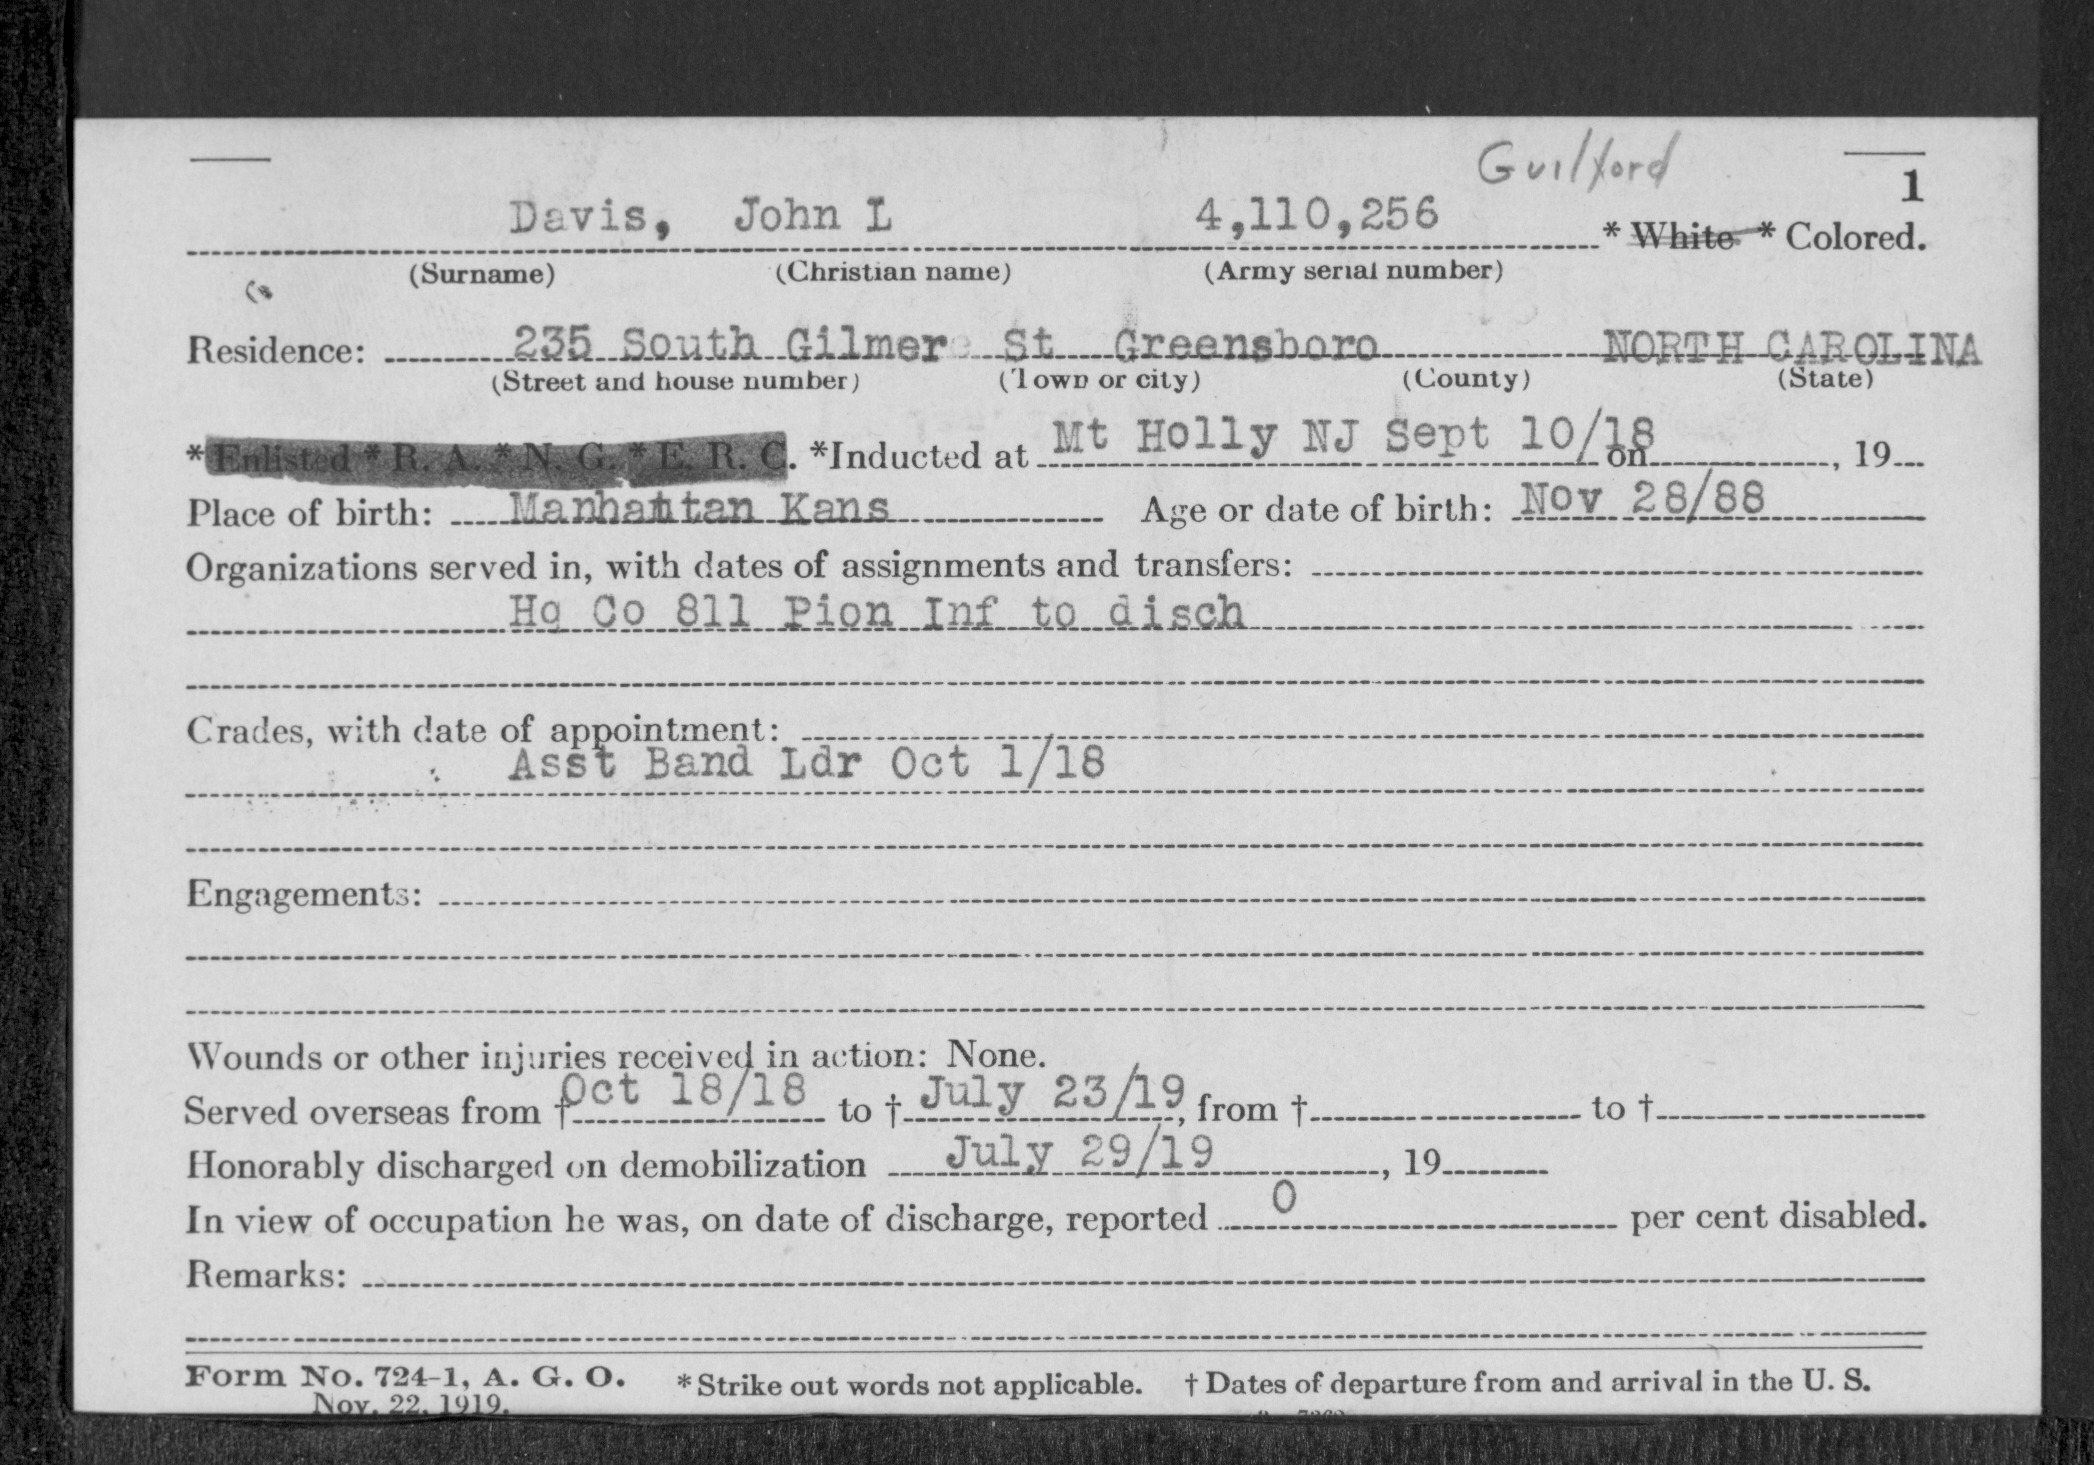 Guilford
1
Davis, John L 4,110,256 * White * Colored.
(Surname) (Christian name) (Army serial number)
Residence: 235 South Gilmer St Greensboro NORTH CAROLINA
(Street and house number) (Town or city) (County) (State)
* Enlisted * R. A. * N. G. * E. R. C. *Inducted at Mt Holly NJ Sept 10/18 on , 19
Place of birth: Manhattan Kans Age or date of birth: Nov 28/88
Organizations served in, with dates of assignments and transfers:
Hq Co 811 Pion Inf to disch
Grades, with date of appointment:
Asst Band Ldr Oct 1/18
Engagements:
Wounds or other injuries received in action: None.
Served overseas from † Oct 18/18 to † July 23/19, from † to †
Honorably discharged on demobilization July 29/19 , 19
In view of occupation he was, on date of discharge, reported 0 per cent disabled.
Remarks:
Form No. 724-1, A. G. O. * Strike out words not applicable. † Dates of departure from and arrival in the U. S.
Nov. 22, 1919.